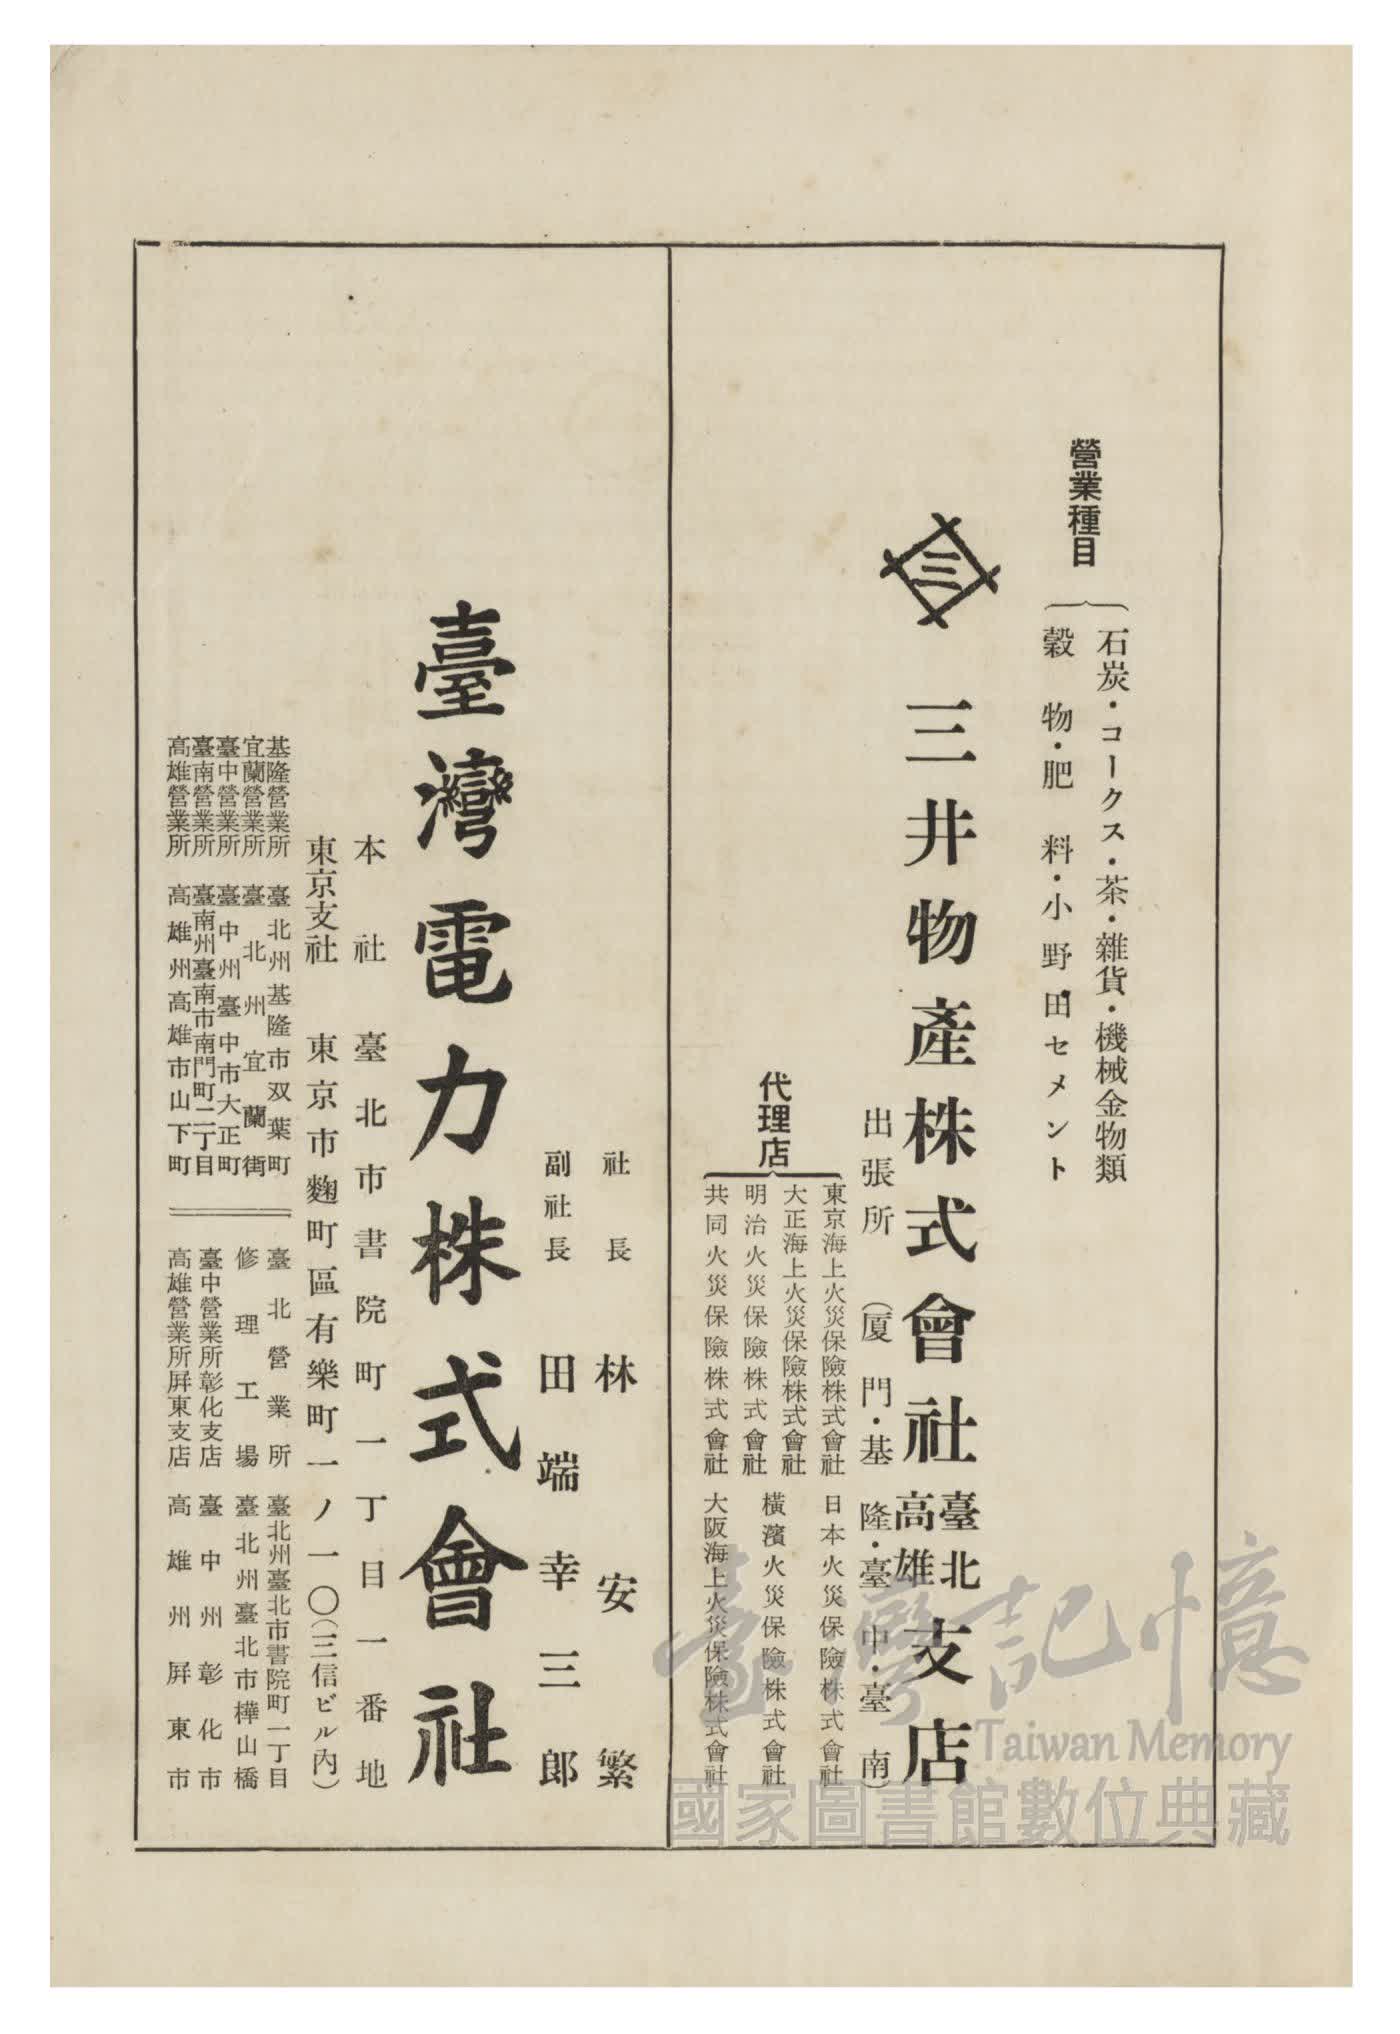 營業種目
石炭・コークス・茶・雜貨・機械金物類
穀物・肥料・小野田セメント
三
三井物產株式會社
臺北
高雄
支店
出張所（厦門・基隆・臺中・臺南）
代理店
東京海上火災保險株式會社
日本火災保險株式會社
大正海上火災保險株式會社
橫濱火災保險株式會社
明治火災保險株式會社
共同火災保險株式會社
大阪海上火災保險株式會社
社長 林安繁
副社長 田端幸三郎
臺灣電力株式會社
本社 臺北市書院町一丁目一番地
東京支社 東京市麴町區有樂町一ノ一〇（三信ビル內）
基隆營業所 臺北州基隆市双葉町
宜蘭營業所 臺北州宜蘭街
臺中營業所 臺中州臺中市大正町
臺南營業所 臺南州臺南市南門町二丁目
高雄營業所 高雄州高雄市山下町
臺北營業所 臺北州臺北市書院町一丁目
修理工場 臺北州臺北市樺山橋
臺中營業所彰化支店 臺中州彰化市
高雄營業所屏東支店 高雄州屏東市
臺灣記憶
Taiwan Memory
國家圖書館數位典藏